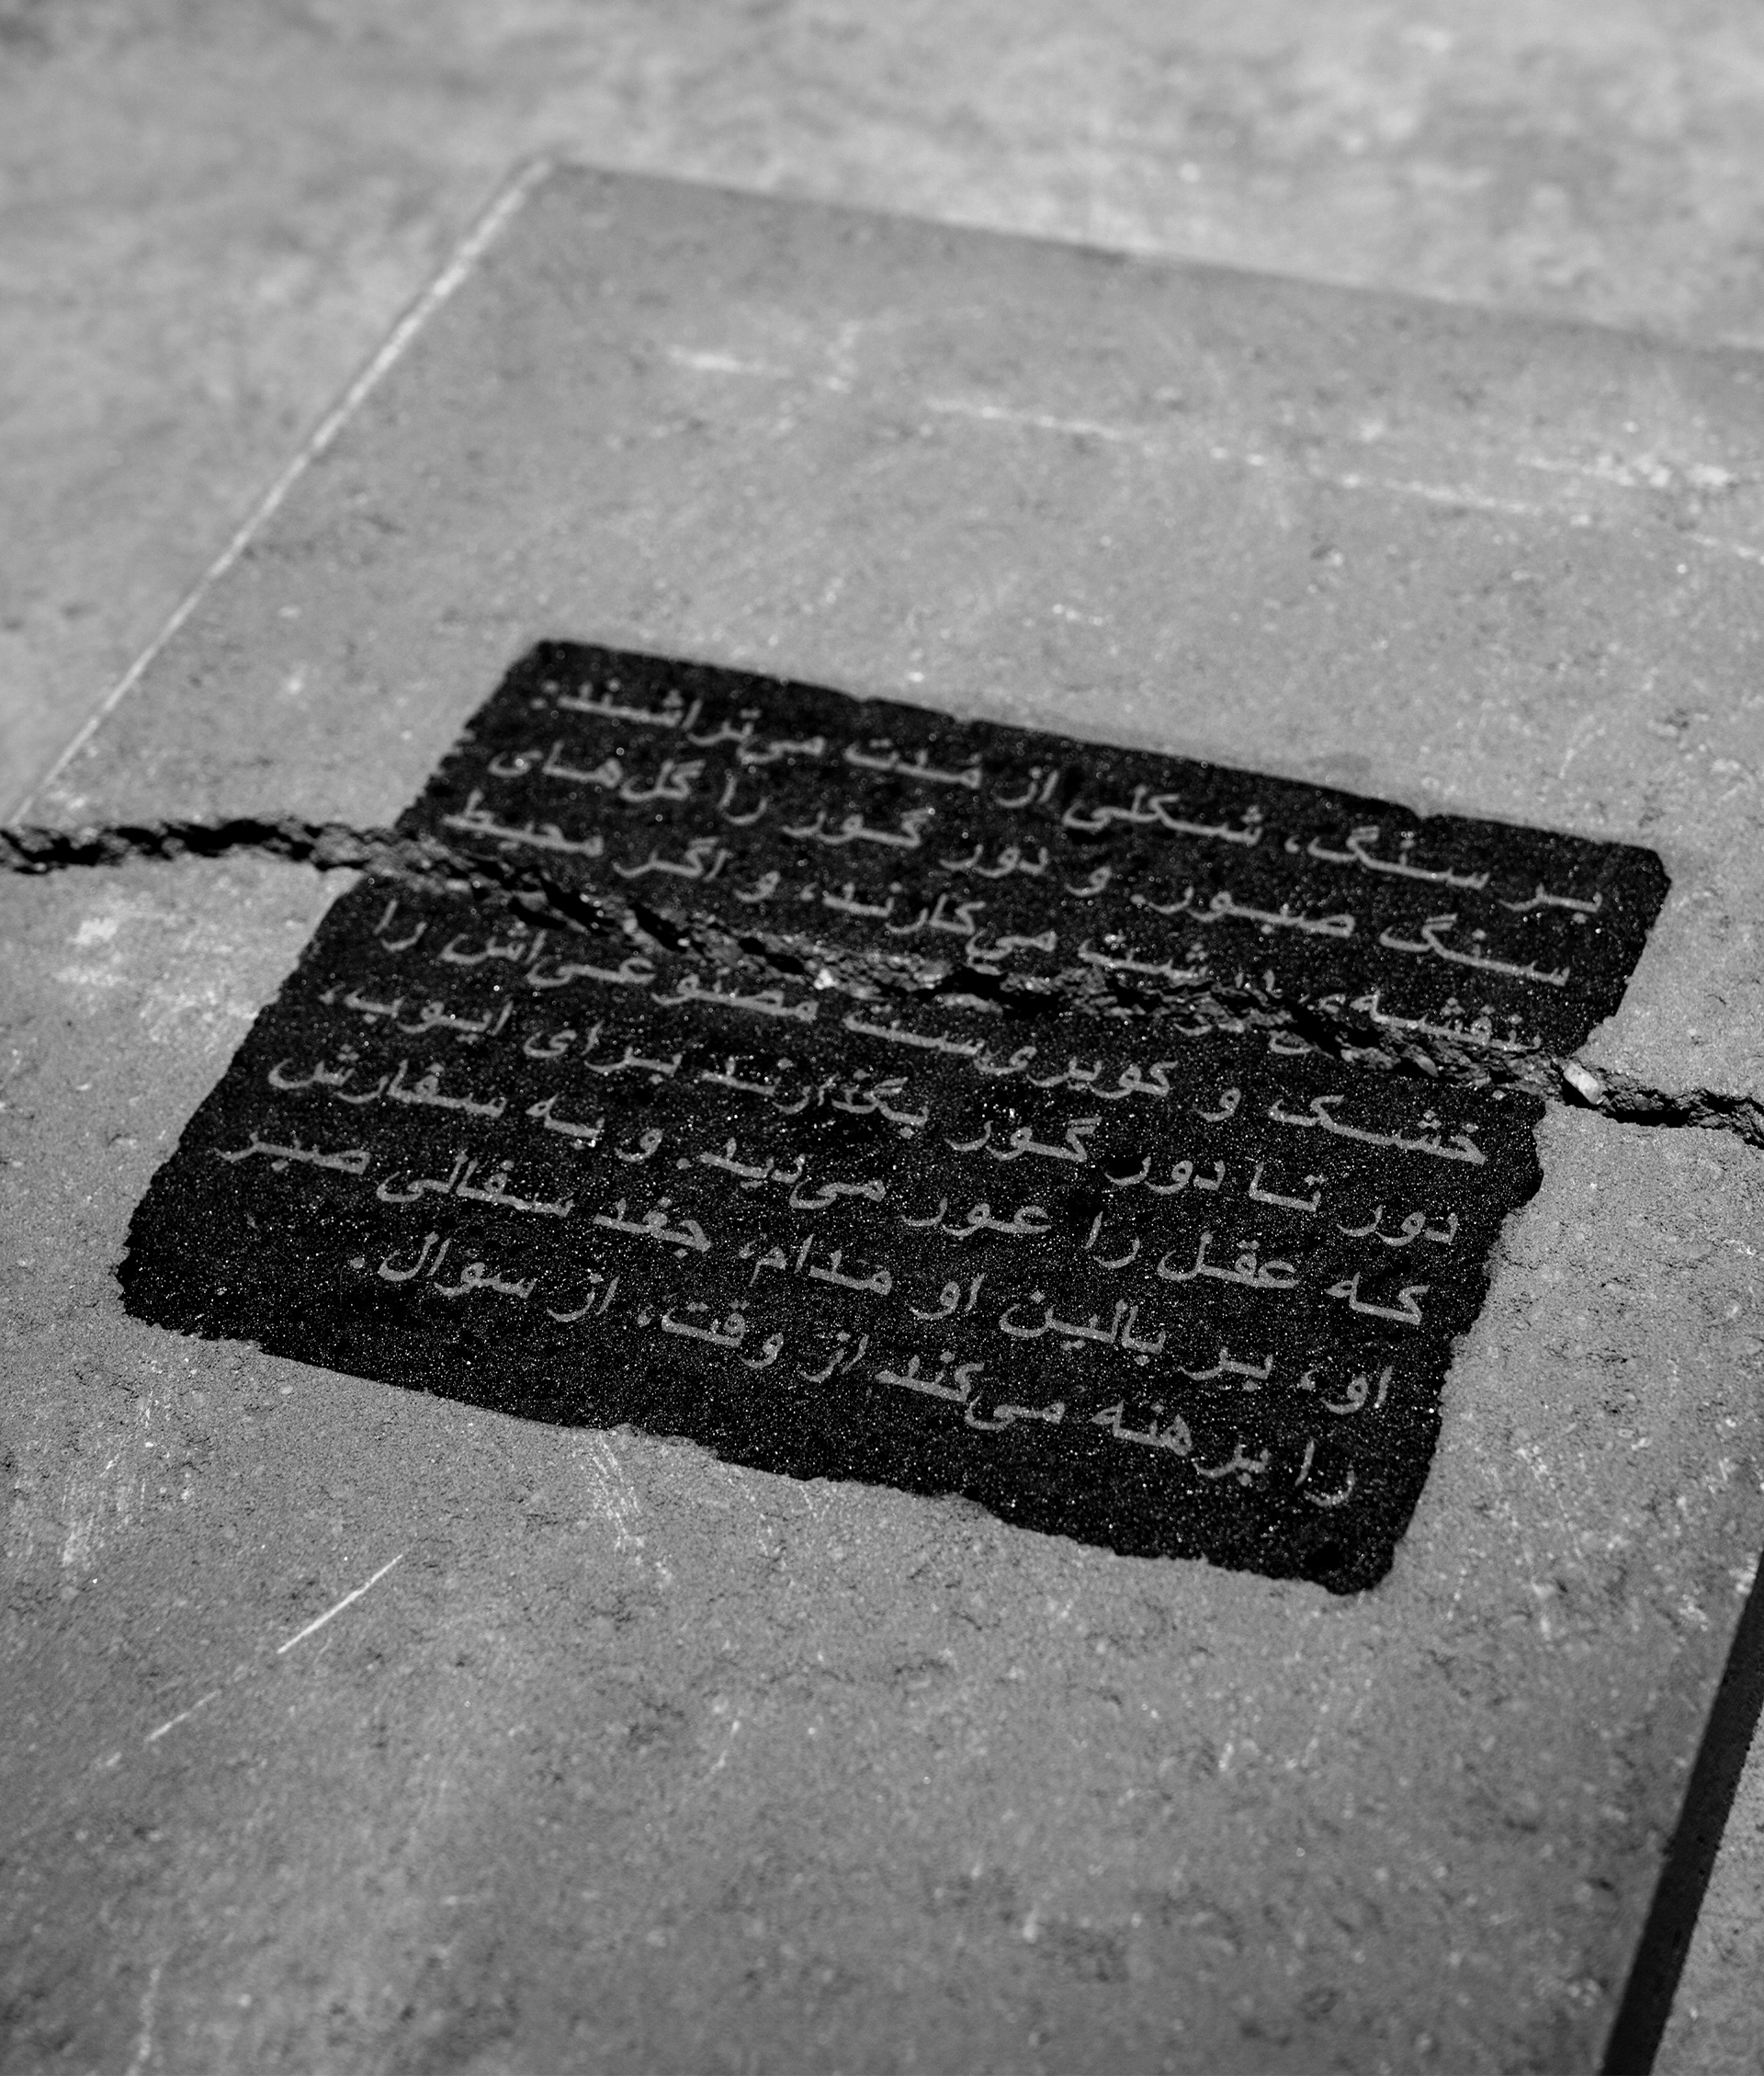 بر سنگ، شکلی از مدت می‌تراشند:
سنگ صبور. و دور گور را گل‌های
بنفشه‌ی درشت می‌کارند، و اگر محیط
خشک و کویری‌ست مصنوعی‌اش را
دور تا دور گور بگذارند برای ایوب،
که عقل را عور می‌دید. و به سفارش
او، بر بالین او مدام، جغد سفالی صبر
را برهنه می‌کند از وقت، از سوال.